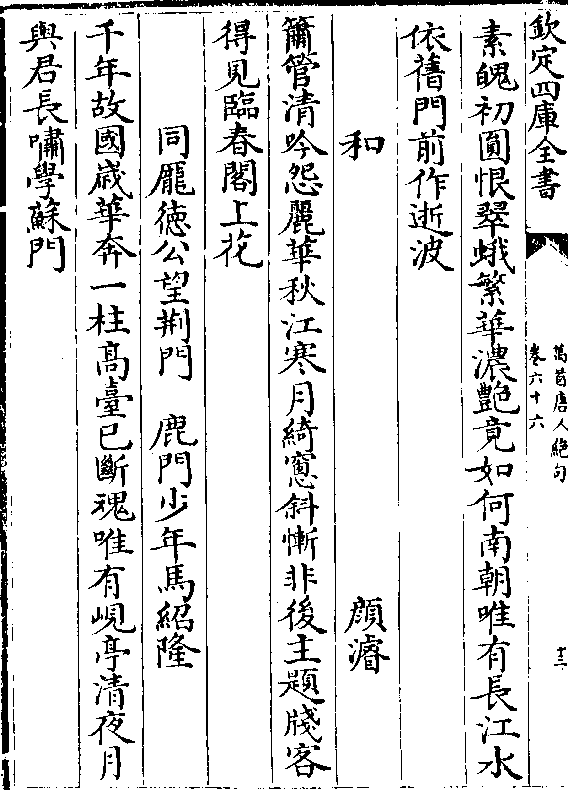 欽定四庫全書
萬首唐人絶句
卷六十六
十三
素魄初圓恨翠蛾繁華濃艷竟如何南朝唯有長江水
依舊門前作逝波
和 顔濬
簫管清吟怨麗華秋江寒月綺窻斜慚非後主題牋客
得見臨春閣上花
同龎徳公望荆門 鹿門少年馬紹隆
千年故國嵗華奔一柱髙臺已斷魂唯有峴亭清夜月
與君長嘯學蘇門